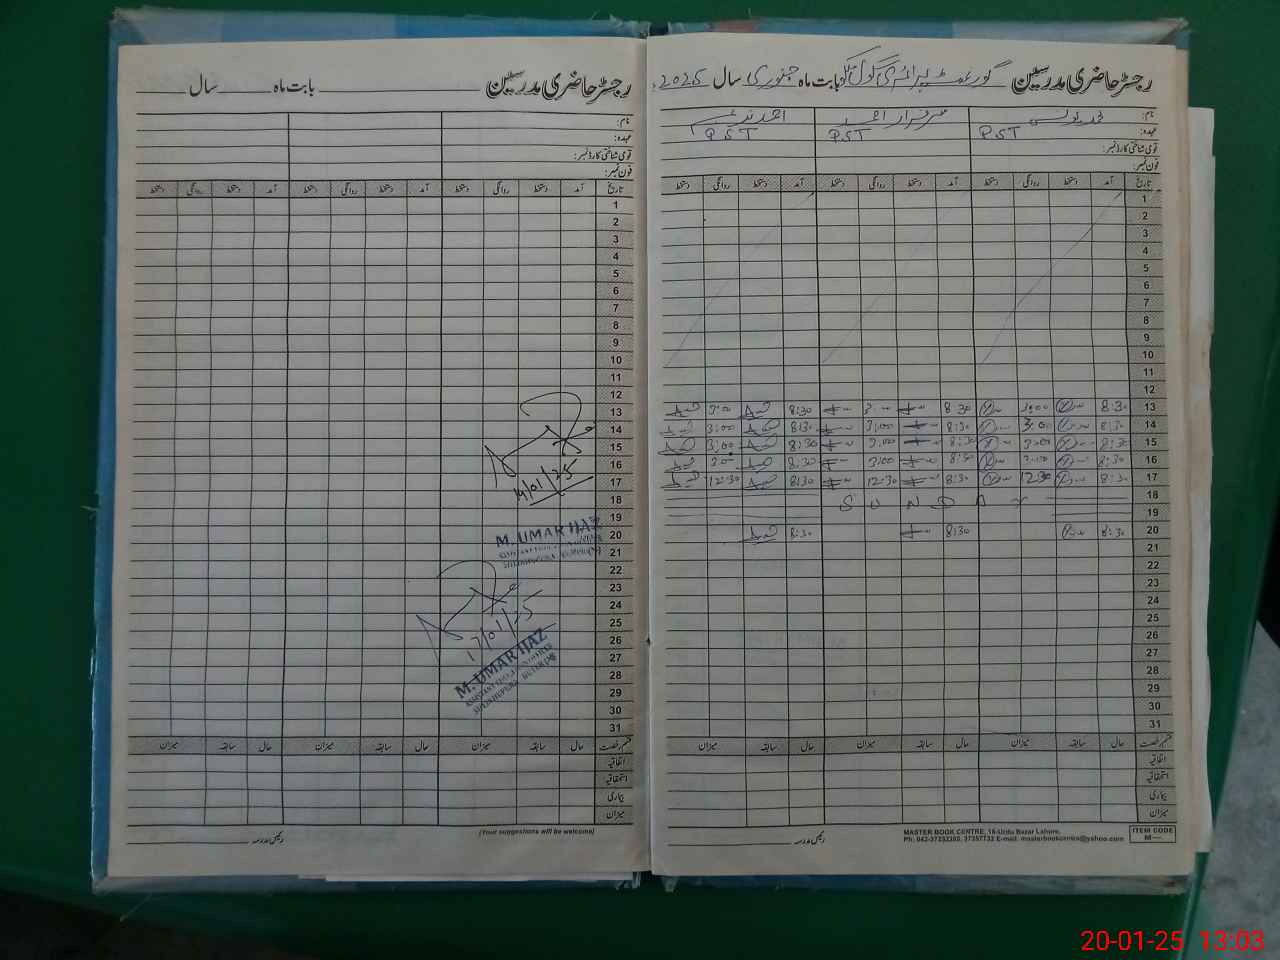 رجسٹر حاضری مدرسین گورنمنٹ پرائمری سکول بابت ماہ جنوری سال 2025ء
نام: محمد یونس سرفراز احمد احمد ندیم
عہدہ: PST PST PST
قومی شناختی کارڈ نمبر:
فون نمبر:
تاریخ آمد دستخط روانگی دستخط آمد دستخط روانگی دستخط آمد دستخط روانگی دستخط
1
2
3
4
5
6
7
8
9
10
11
12
13 8:30 3:00 8:30 3:00 8:30 3:00
14 8:30 3:00 8:30 3:00 8:30 3:00
15 8:30 3:00 8:30 3:00 8:30 3:00
16 8:30 3:00 8:30 3:00 8:30 3:00
17 8:30 12:30 8:30 12:30 8:30 12:30
18 SUNDAY
19
20 8:30 8:30 8:30
21
22
23
24
25
26
27
28
29
30
31
قسم رخصت حال سابقہ میزان حال سابقہ میزان حال سابقہ میزان
اتفاقیہ
استحقاقیہ
بیماری
میزان
رئیس مدرسہ
MASTER BOOK CENTRE, 16-Urdu Bazar Lahore.
ITEM CODE
M—
رجسٹر حاضری مدرسین بابت ماہ سال
نام:
عہدہ:
قومی شناختی کارڈ نمبر:
فون نمبر:
تاریخ آمد دستخط روانگی دستخط آمد دستخط روانگی دستخط آمد دستخط روانگی دستخط
1
2
3
4
5
6
7
8
9
10
11
12
13
14
15
16
17
18
19
20
21
22
23
24
25
26
27
28
29
30
31
14/01/25
M. UMAR IJAZ
17/01/25
M. UMAR IJAZ
قسم رخصت حال سابقہ میزان حال سابقہ میزان حال سابقہ میزان
اتفاقیہ
استحقاقیہ
بیماری
میزان
(Your suggestions will be welcome)
رئیس مدرسہ
20-01-25 13:03